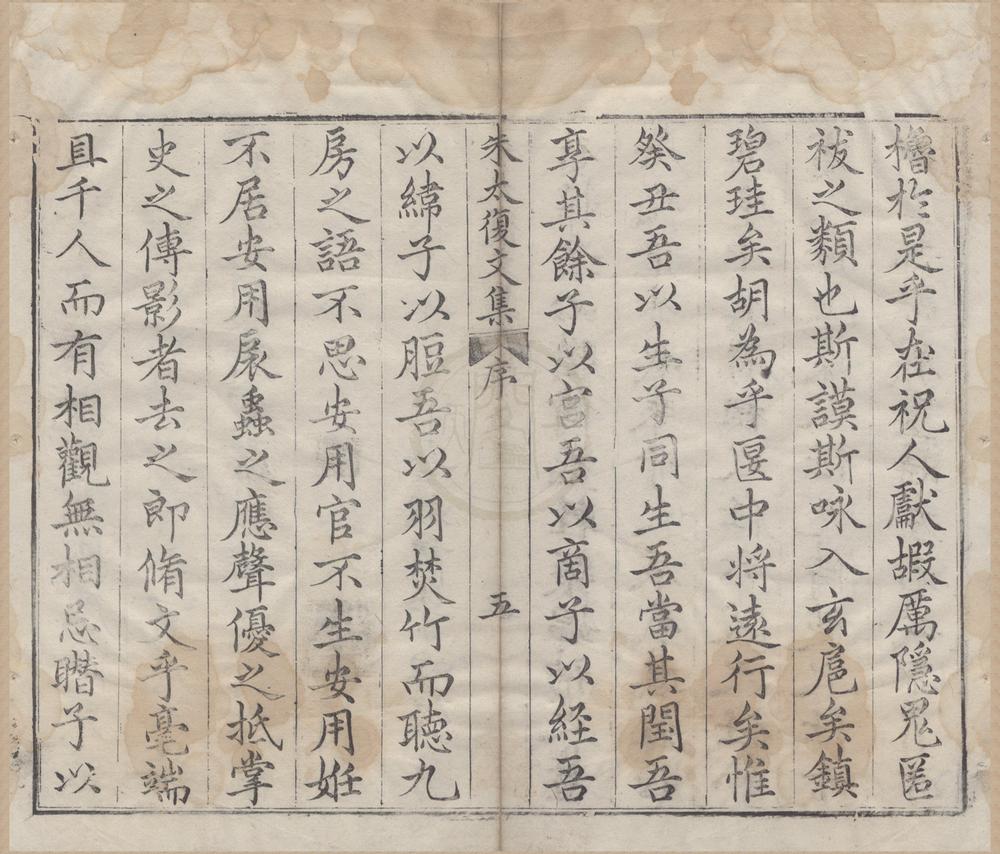 櫓於是乎在祝人獻嘏厲隱鬼匿
祓之類也斯謨斯咏入玄扈矣鎮
碧珪矣胡為乎匽中将遠行矣惟
癸丑吾以生子同生吾當其閏吾
享其餘子以宮吾以商子以経吾
朱太復文集 序 五
以緯子以脰吾以羽焚竹而聴九
房之語不思安用官不生安用姙
不居安用扆蟲之應聲優之抵掌
史之傳影者去之即脩文乎毫端
且千人而有相觀無相忌瞻子以